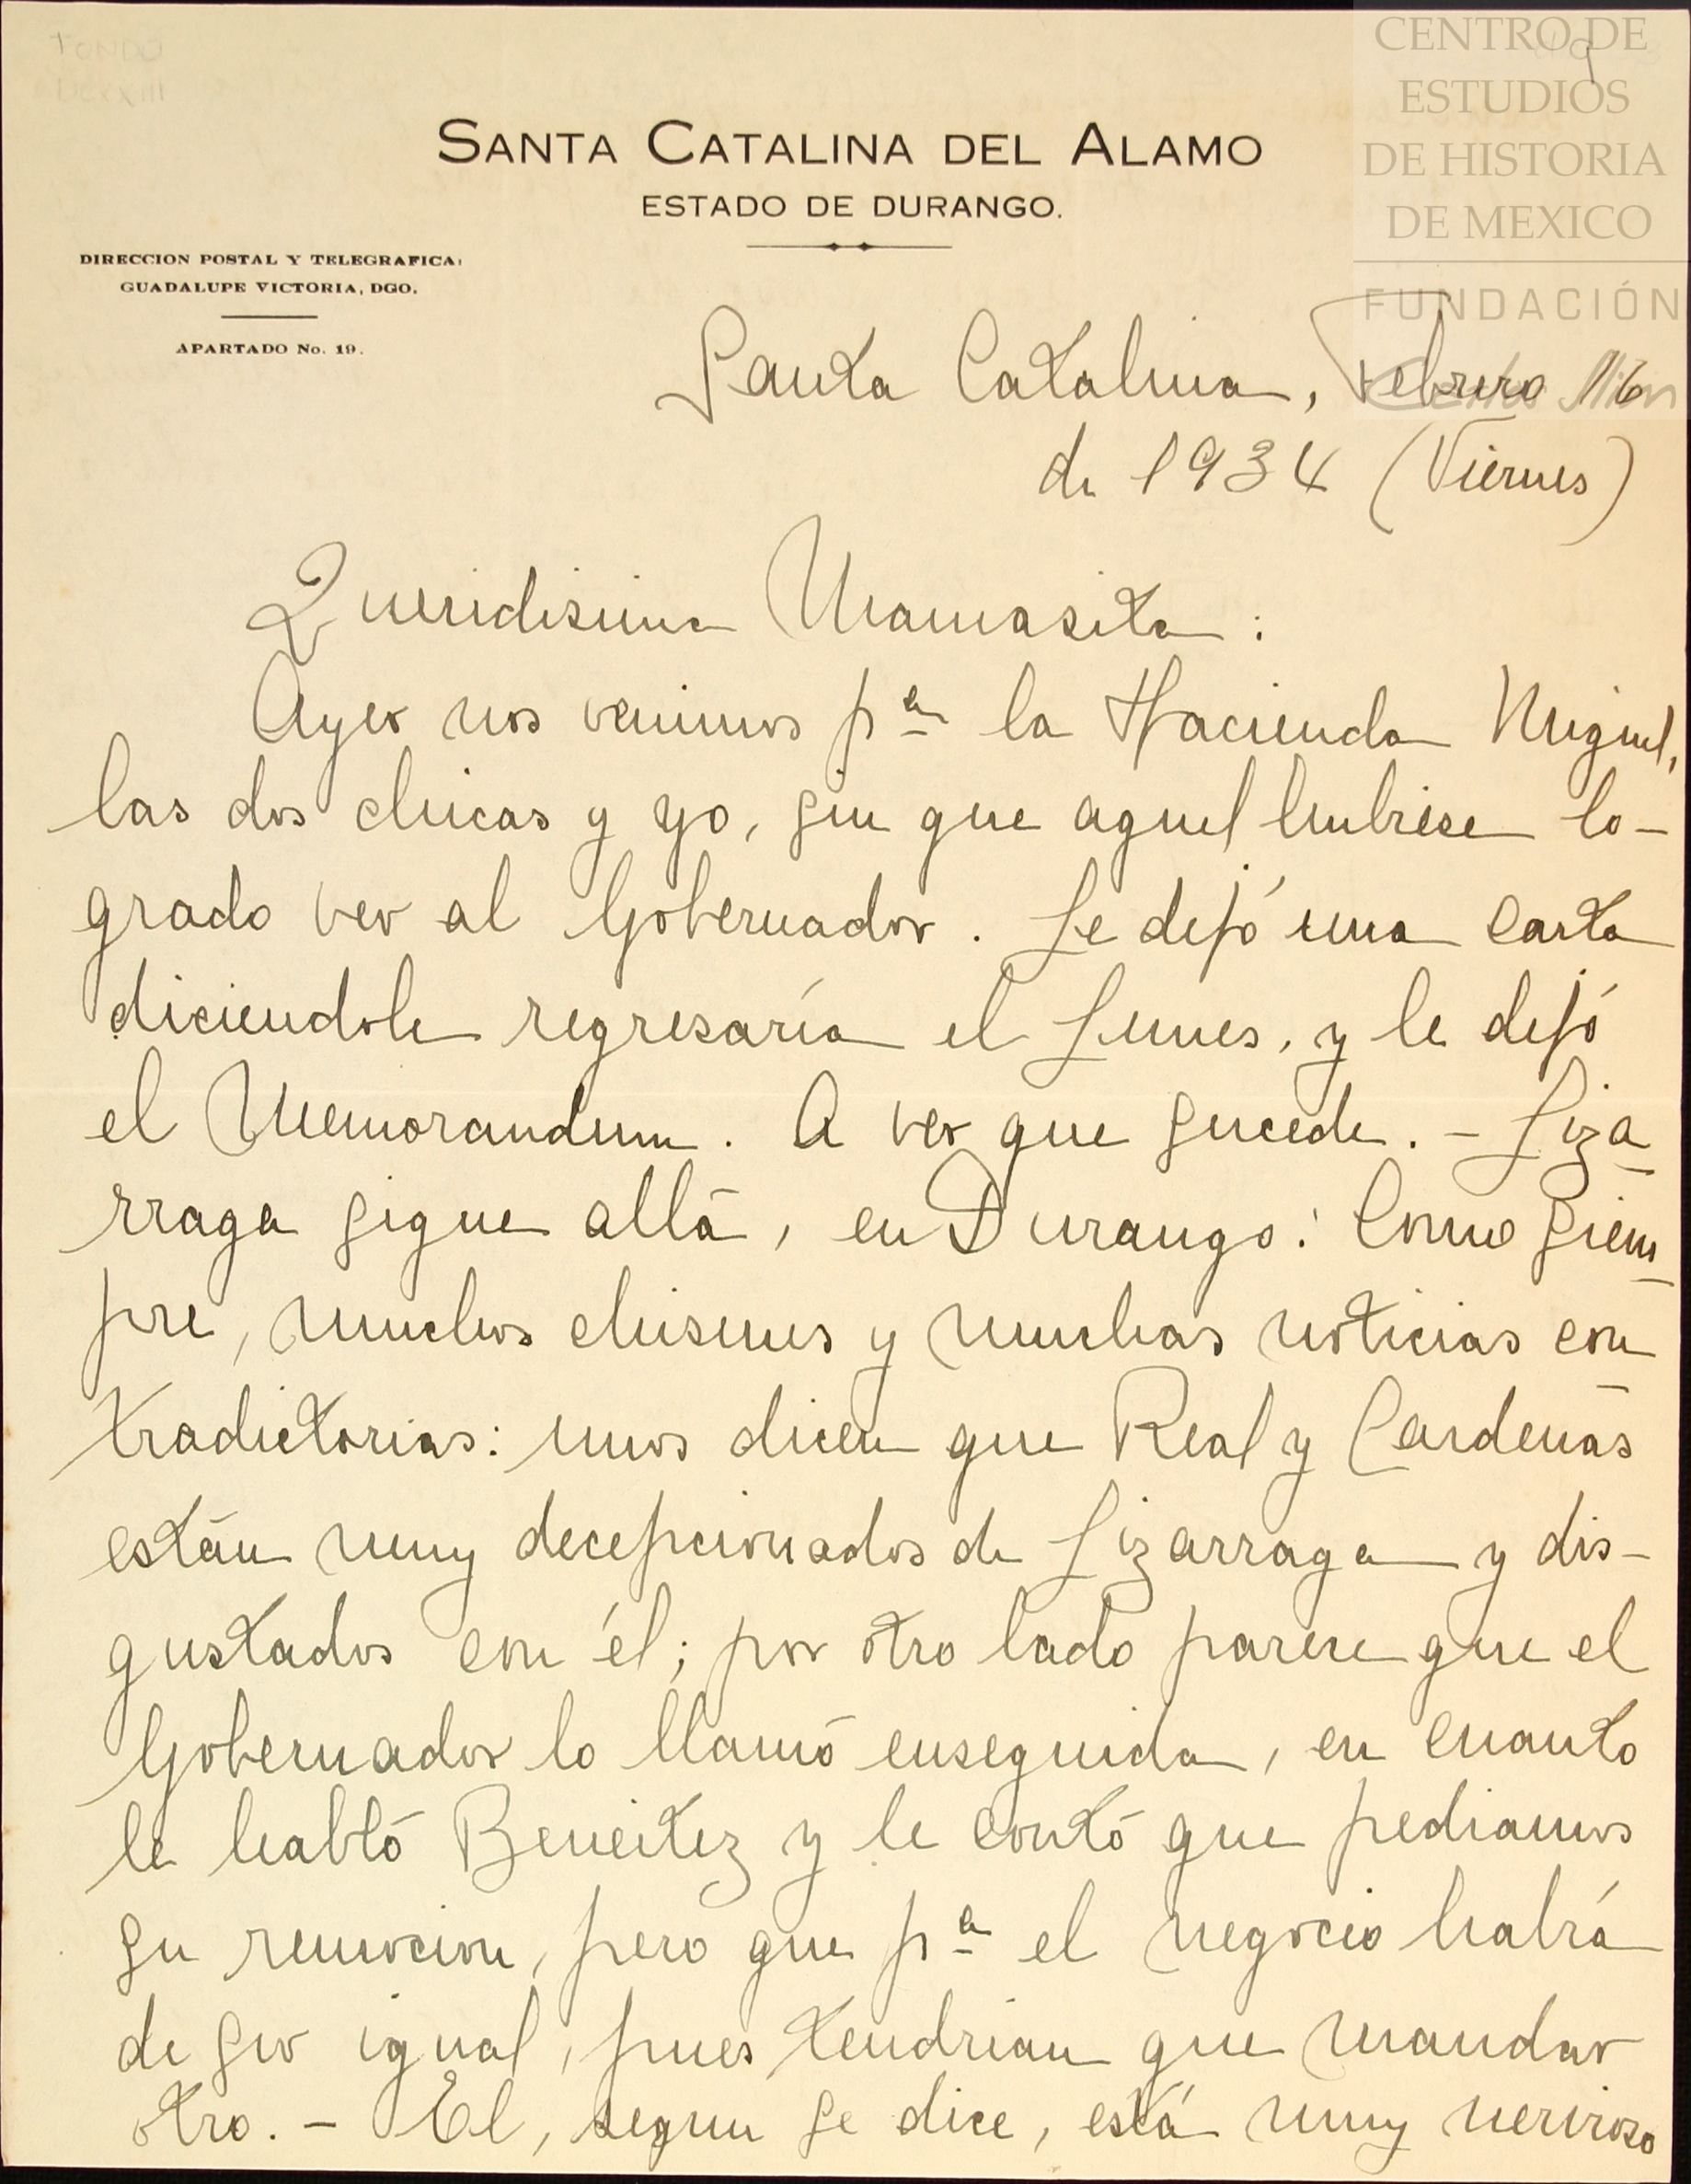 FONDO
DCXXIII
9
CENTRO DE
ESTUDIOS
DE HISTORIA
DE MEXICO
FUNDACIÓN
SANTA CATALINA DEL ALAMO
ESTADO DE DURANGO.
DIRECCION POSTAL Y TELEGRAFICA:
GUADALUPE VICTORIA, DGO.
APARTADO No. 19.
Santa Catalina, Febrero 16
de 1934 (Viernes)
Queridisima Mamasita:
Ayer nos venimos pª la Hacienda Miguel,
las dos chicas y yo, sin que aquel hubiese lo-
grado ver al Gobernador. Le dejó una carta
diciendole regresaría el Lunes, y le dejó
el Memorandum. A ver que sucede. - Liza-
rraga sigue allá, en Durango: Como siem-
pre, muchos chismes y muchas noticias con-
tradictorias: unos dicen que Real y Cardenas
están muy decepcionados de Lizarraga y dis-
gustados con él; por otro lado parece que el
Gobernador lo llamó enseguida, en cuanto
le habló Beneitez y le contó que pediamos
su remocion, pero que pª el negocio habrá
de ser igual, pues tendrian que mandar
otro. - El, segun se dice, está muy nervioso